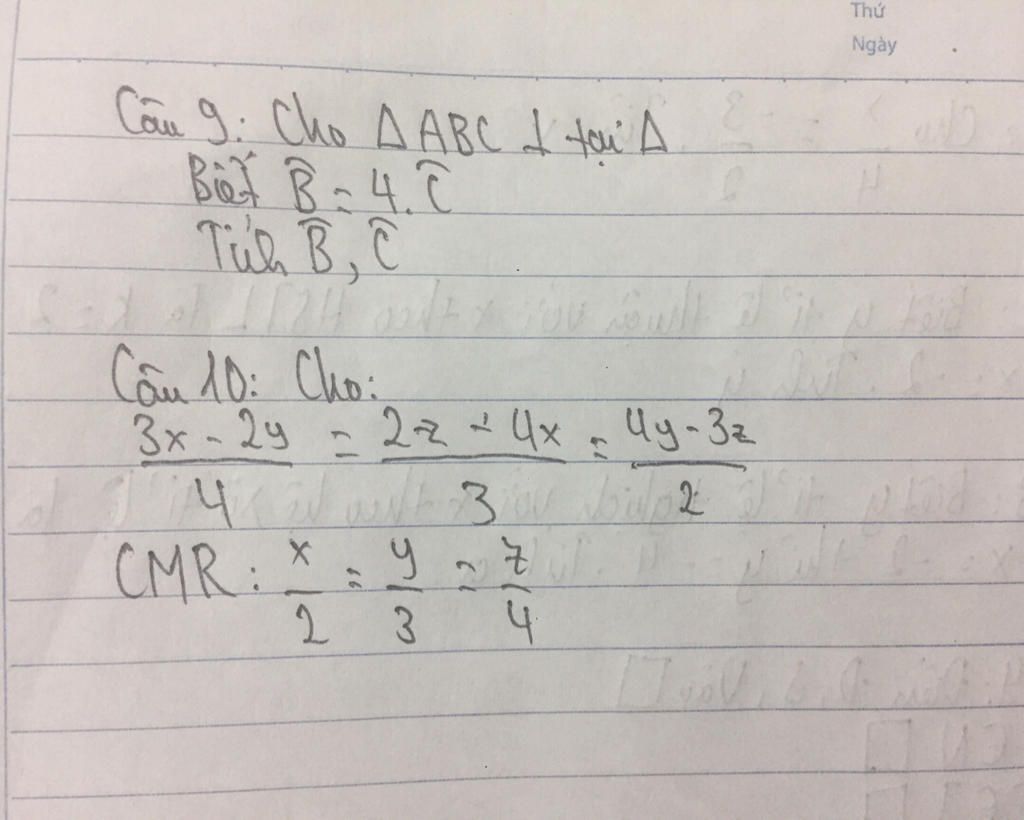 Thứ
Ngày
Câu 9: Cho Δ ABC ⊥ tại Δ
Biết B̂ = 4. Ĉ
Tính B̂, Ĉ
Câu 10: Cho:
3x - 2y / 4 = 2z - 4x / 3 = 4y - 3z / 2
CMR: x/2 = y/3 = z/4